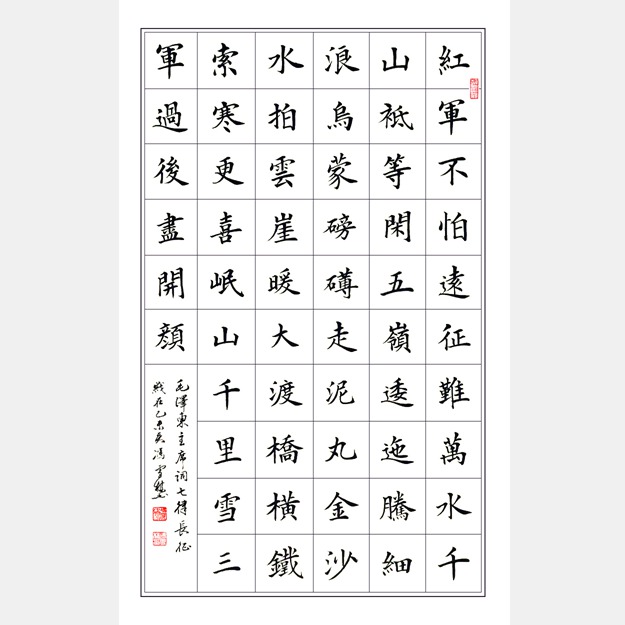 紅軍不怕遠征難萬水千
山祗等閑五嶺逶迤騰細
浪烏蒙磅礡走泥丸金沙
水拍雲崖暖大渡橋橫鐵
索寒更喜岷山千里雪三
軍過後盡開顔
毛澤東主席词七律長征
歲在乙未